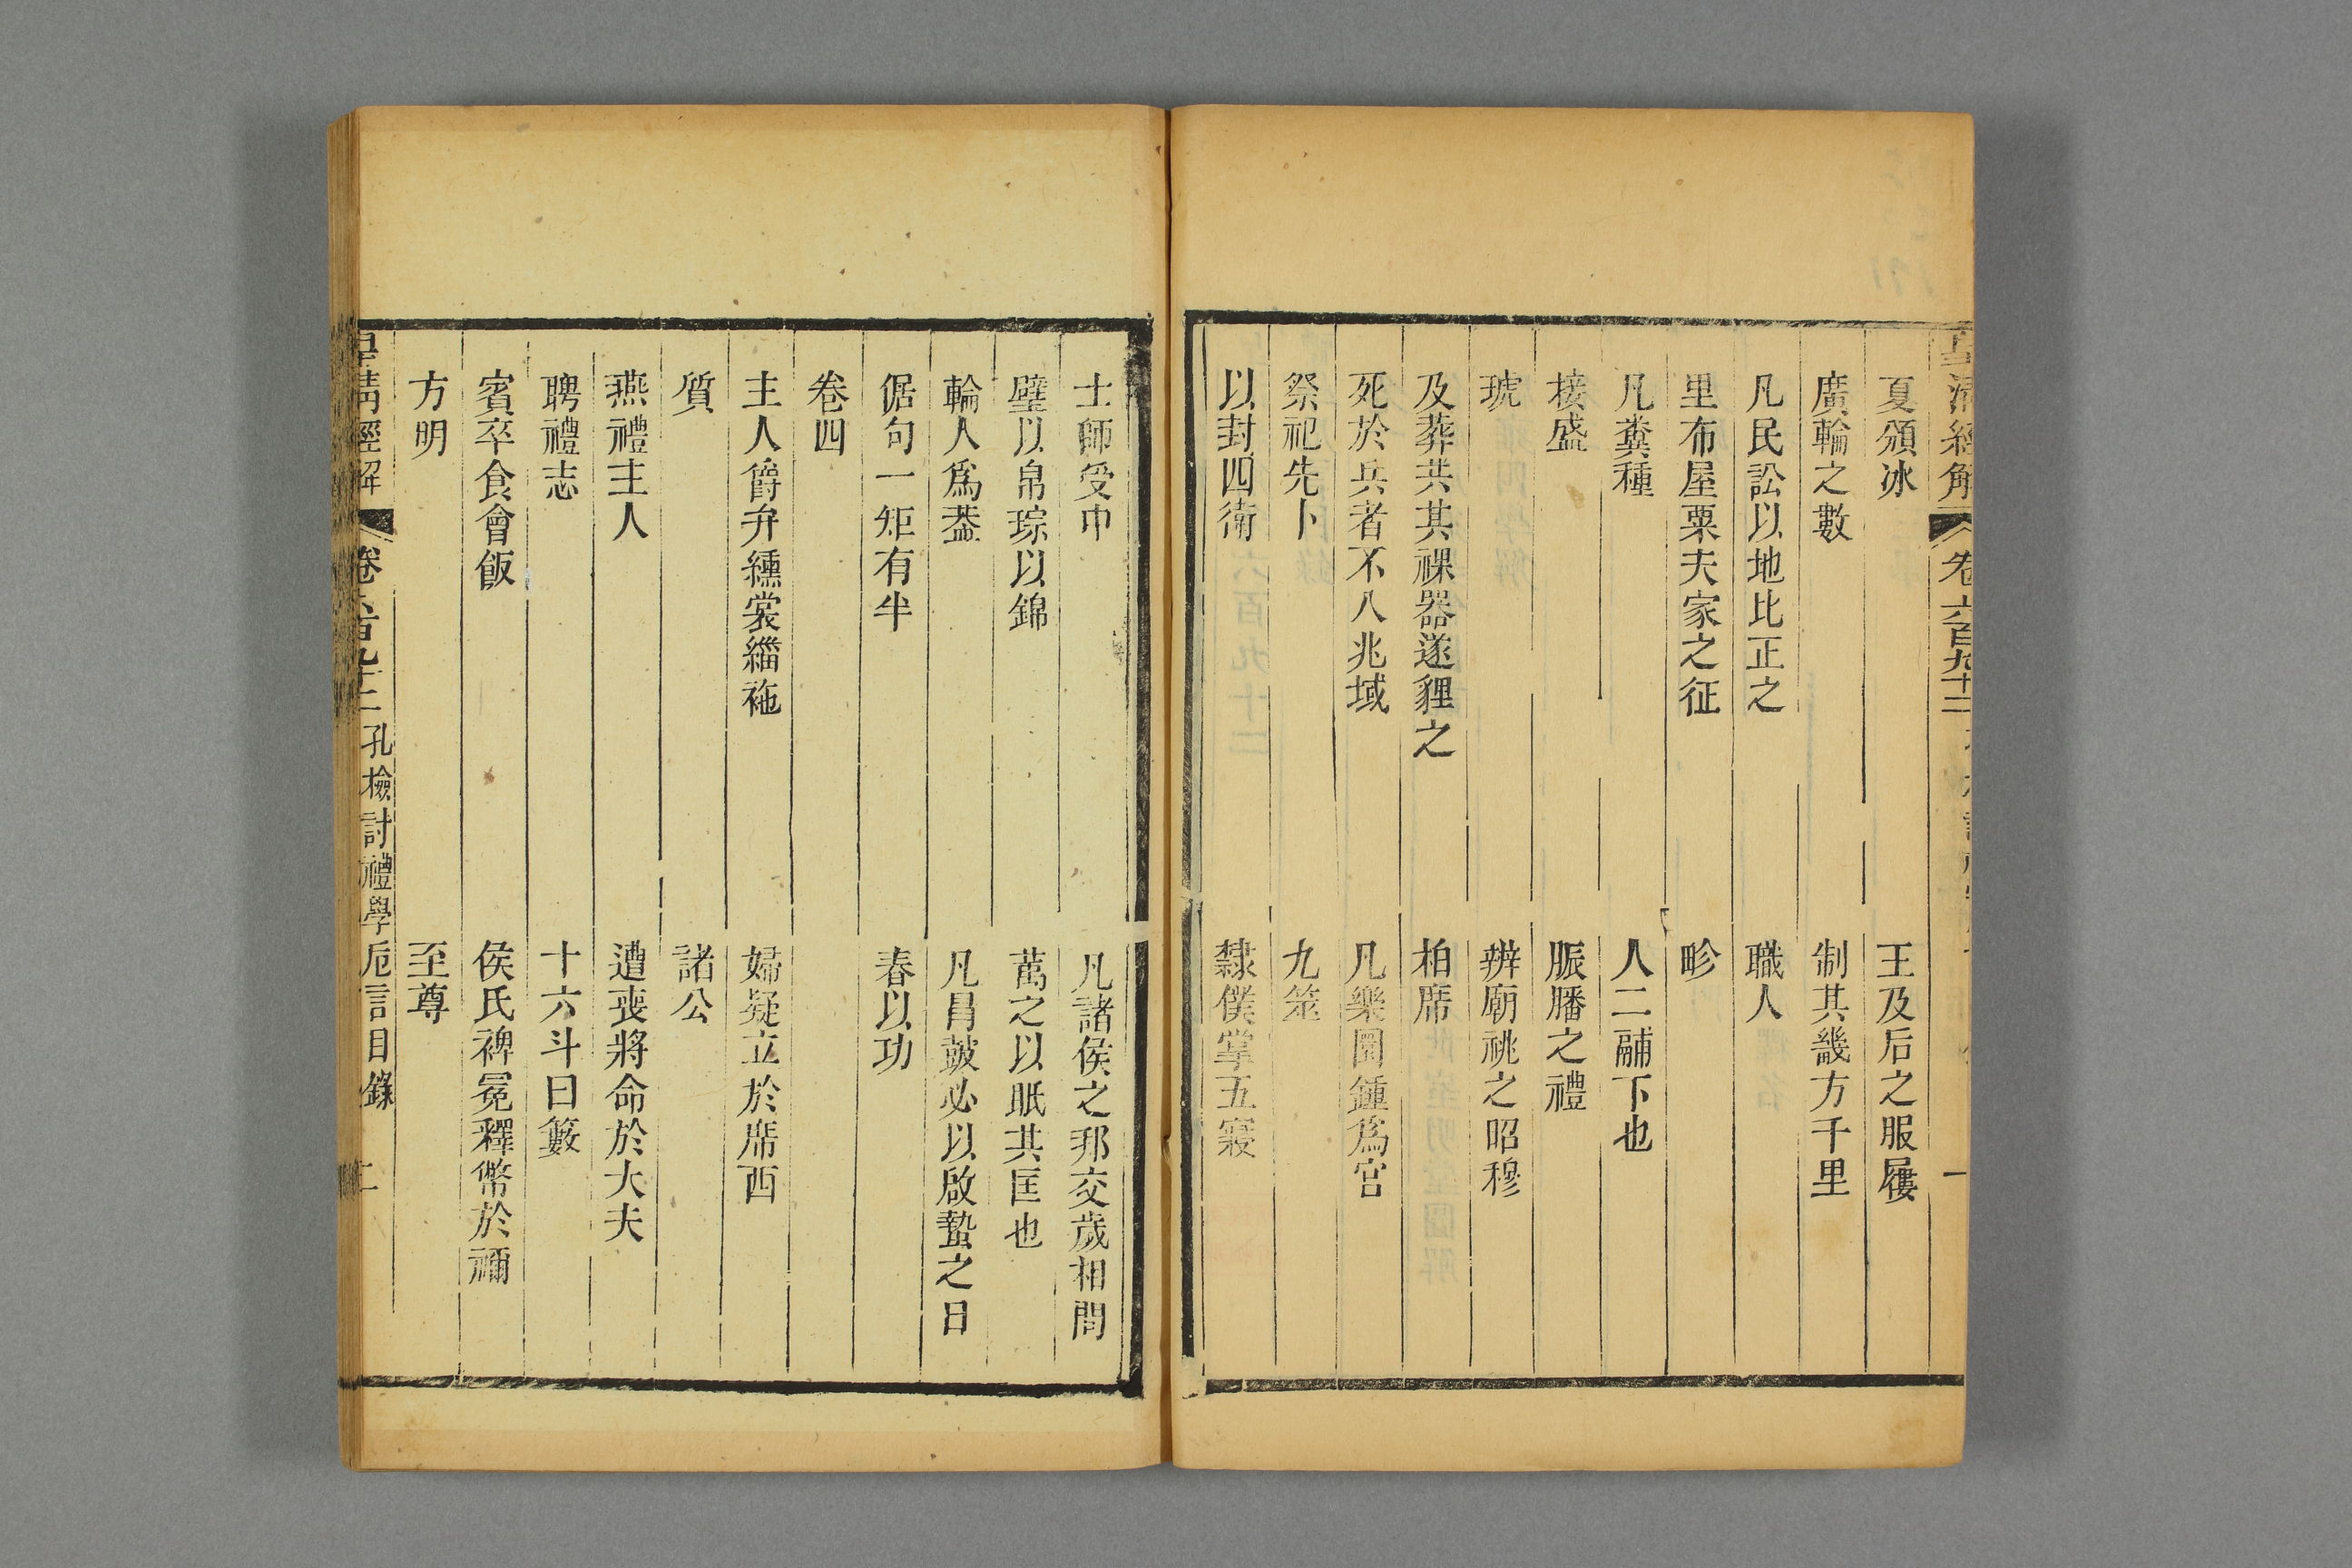 夏頒冰　王及后之服屨
廣輪之數　制其畿方千里
凡民訟以地比正之　職人
里布屋粟夫家之征　畛
凡糞種　人二鬴下也
接盛　脤膰之禮
琥　辨廟祧之昭穆
及葬共其祼器遂貍之　柏席
死於兵者不入兆域　凡樂圜鍾爲宮
祭祀先卜　九筮
以封四衛　隸僕掌五寢
士師受中　凡諸侯之邦交歲相問
璧以帛琮以錦　萭之以眡其匡也
輪人爲蓋　凡冒鼓必以啟蟄之日
倨句一矩有半　春以功
卷四
主人爵弁纁裳緇袘　婦疑立於席西
質　諸公
燕禮主人　遭喪將命於大夫
聘禮志　十六斗曰籔
賓卒食會飯　侯氏裨冕釋幣於禰
方明　至尊
皇清經解　卷六百九十二　孔檢討禮學卮言目錄　二